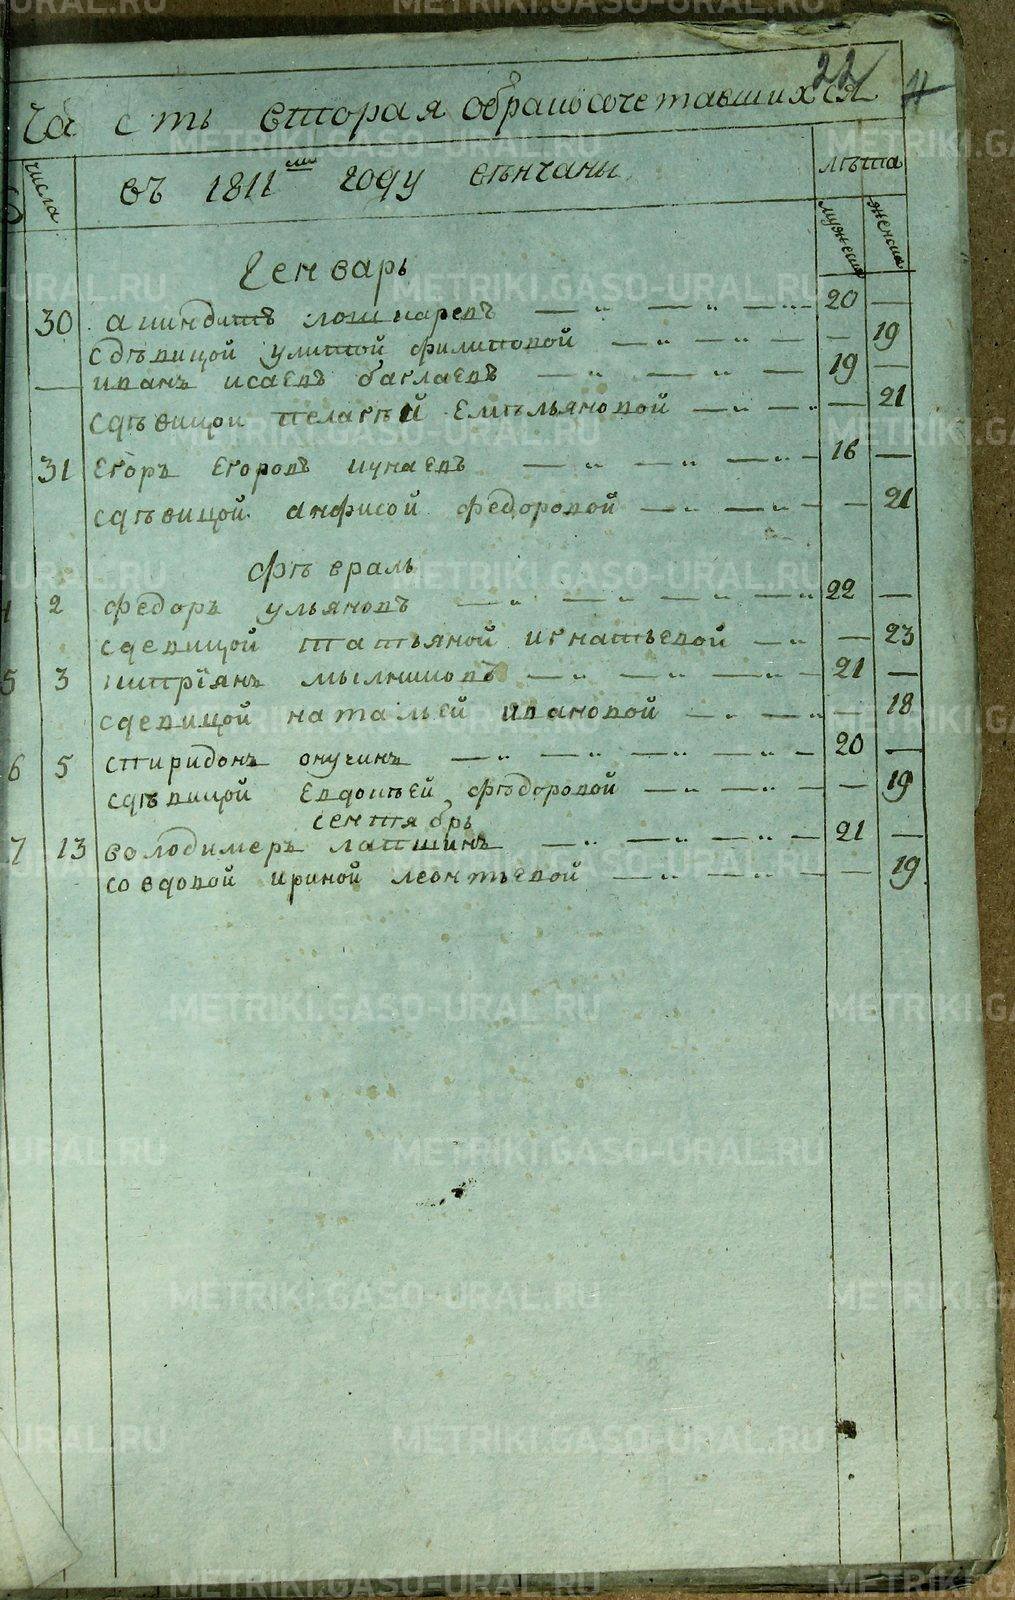 22
Часть вторая обраꙍсочетавшихся
числа
въ 1811мъ году вѣнчаны
лѣта
мужеска
женска
Генварь
30 акиндинъ лошкаревъ 20
сдѣвицой улитой филиповой 19
иванъ исаевъ баклаевъ 19
сдѣвицои пелагѣй Емѣльяновой 21
31 Егоръ Егоровъ кунаевъ 16
сдѣвицой анфисой федоровой 21
фѣвраль
2 федоръ ульяновъ 22
сдевицой татьяной игнатьевой 23
5 3 киприянъ мыльниковъ 21
сдевицой натальей ивановой 18
6 5 спиридонъ онучинъ 20
сдѣвицой Евдокѣей фѣдоровой 19
сентябрь
7 13 володимеръ лапшинъ 21
со вдовой ириной леонтьевой 19
METRIKI.GASO-URAL.RU